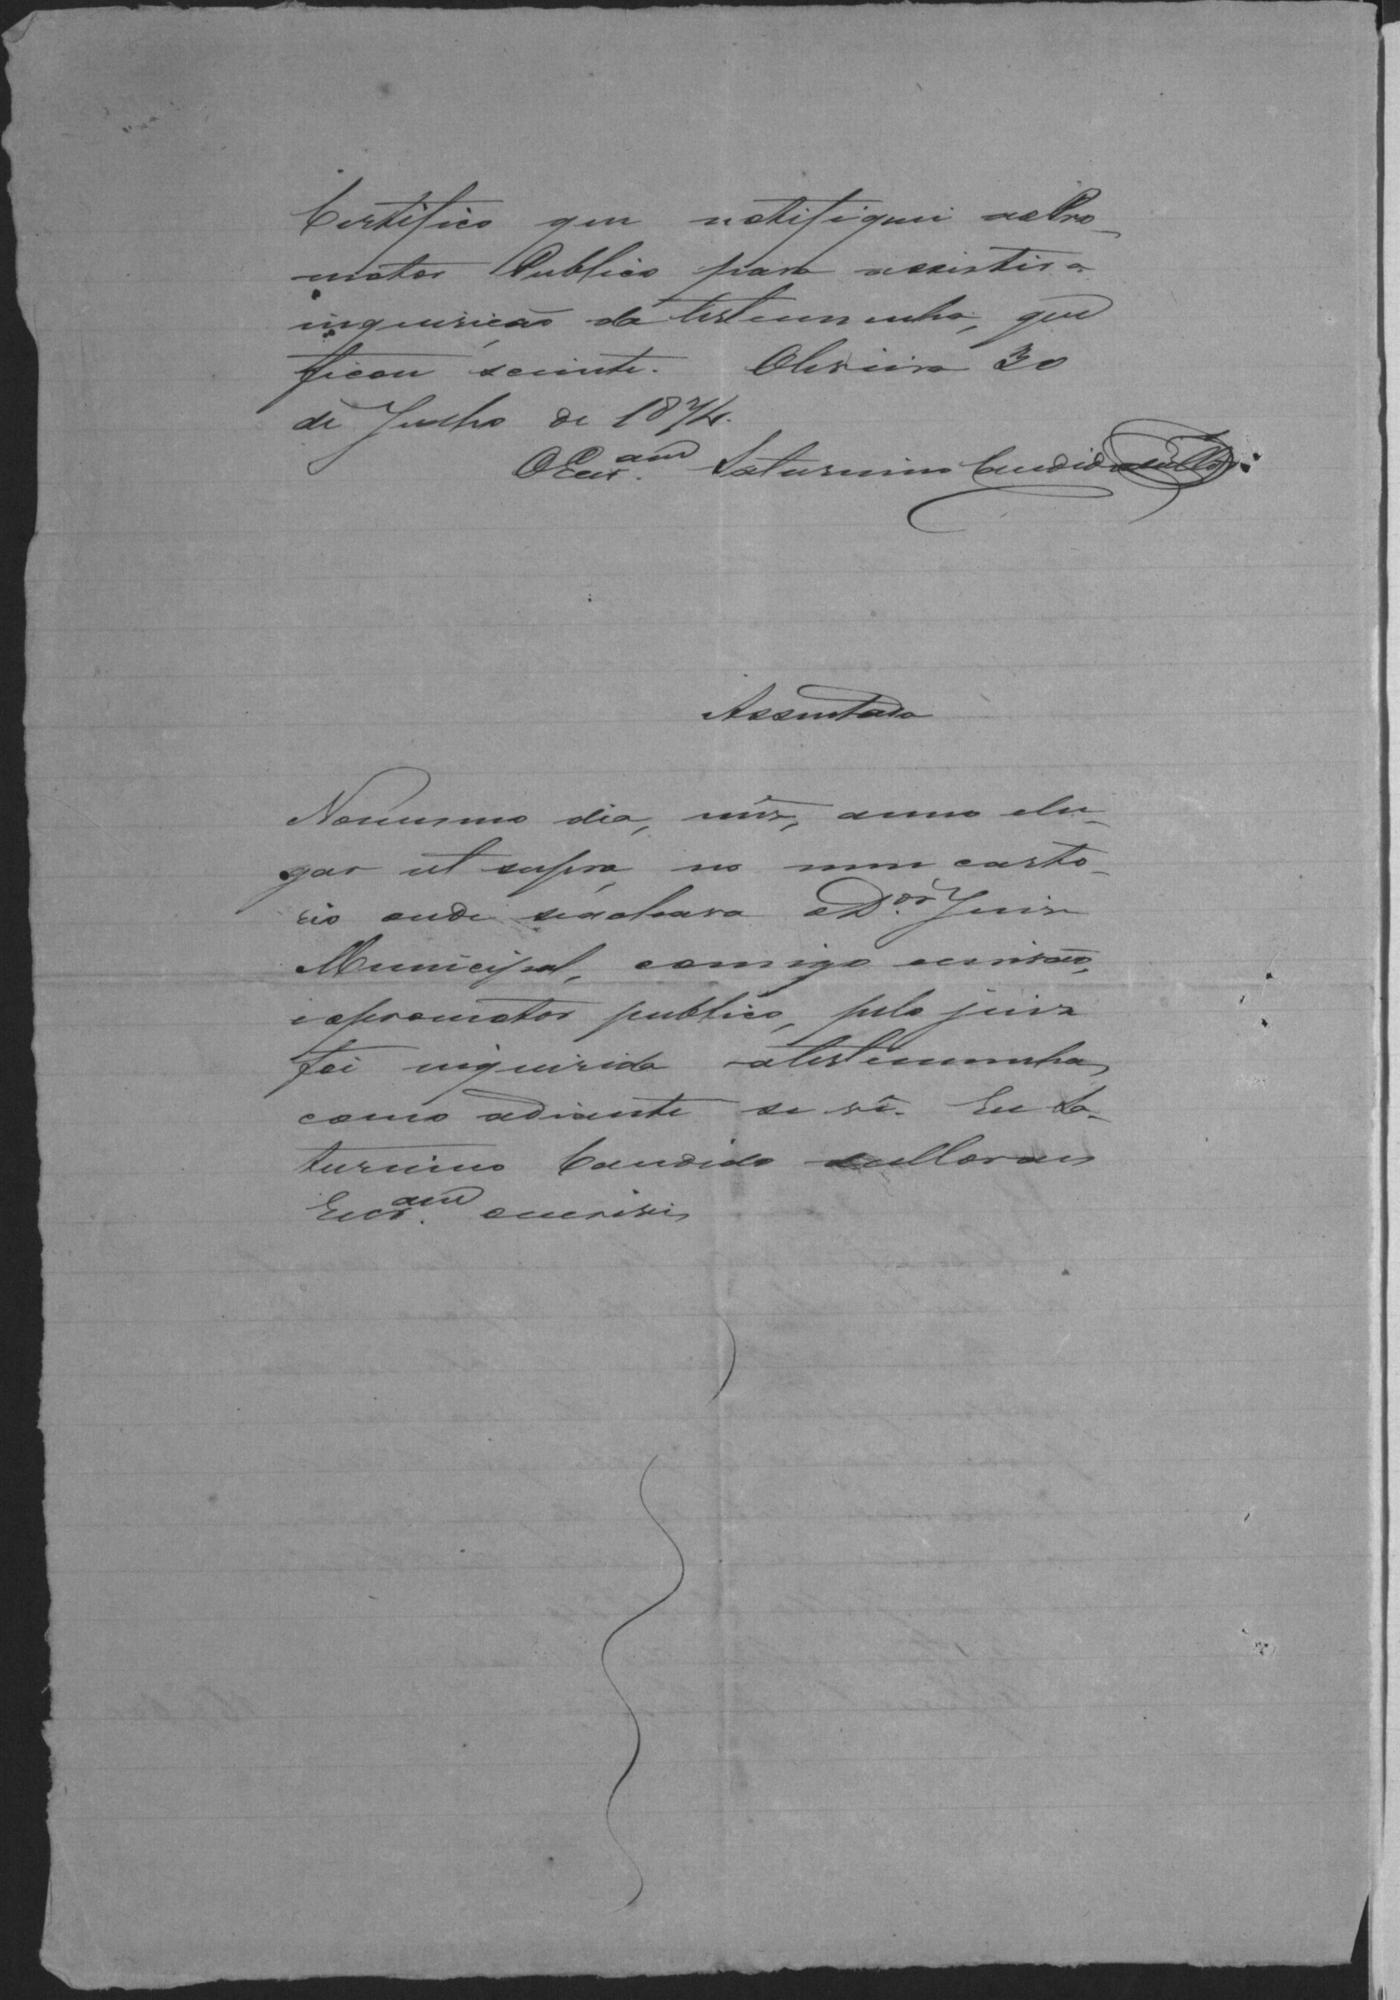 Certifico que notifiquei ao Pro-
motor Publico para assistir a
inquirição da testemunha, que
ficou sciente. Oliveira 30
de Julho de 1874.
O Escr.am Saturnino Candido
Assentada
No mesmo dia, mês, anno e lu-
gar ut supra, no meu carto-
rio onde se achava o D.or Juiz
Municipal, comigo escrivão,
e o promotor publico, pelo juiz
foi inquirida a testemunha,
como adiante se vê. Eu Sa-
turnino Candido
Escr.am escrivi